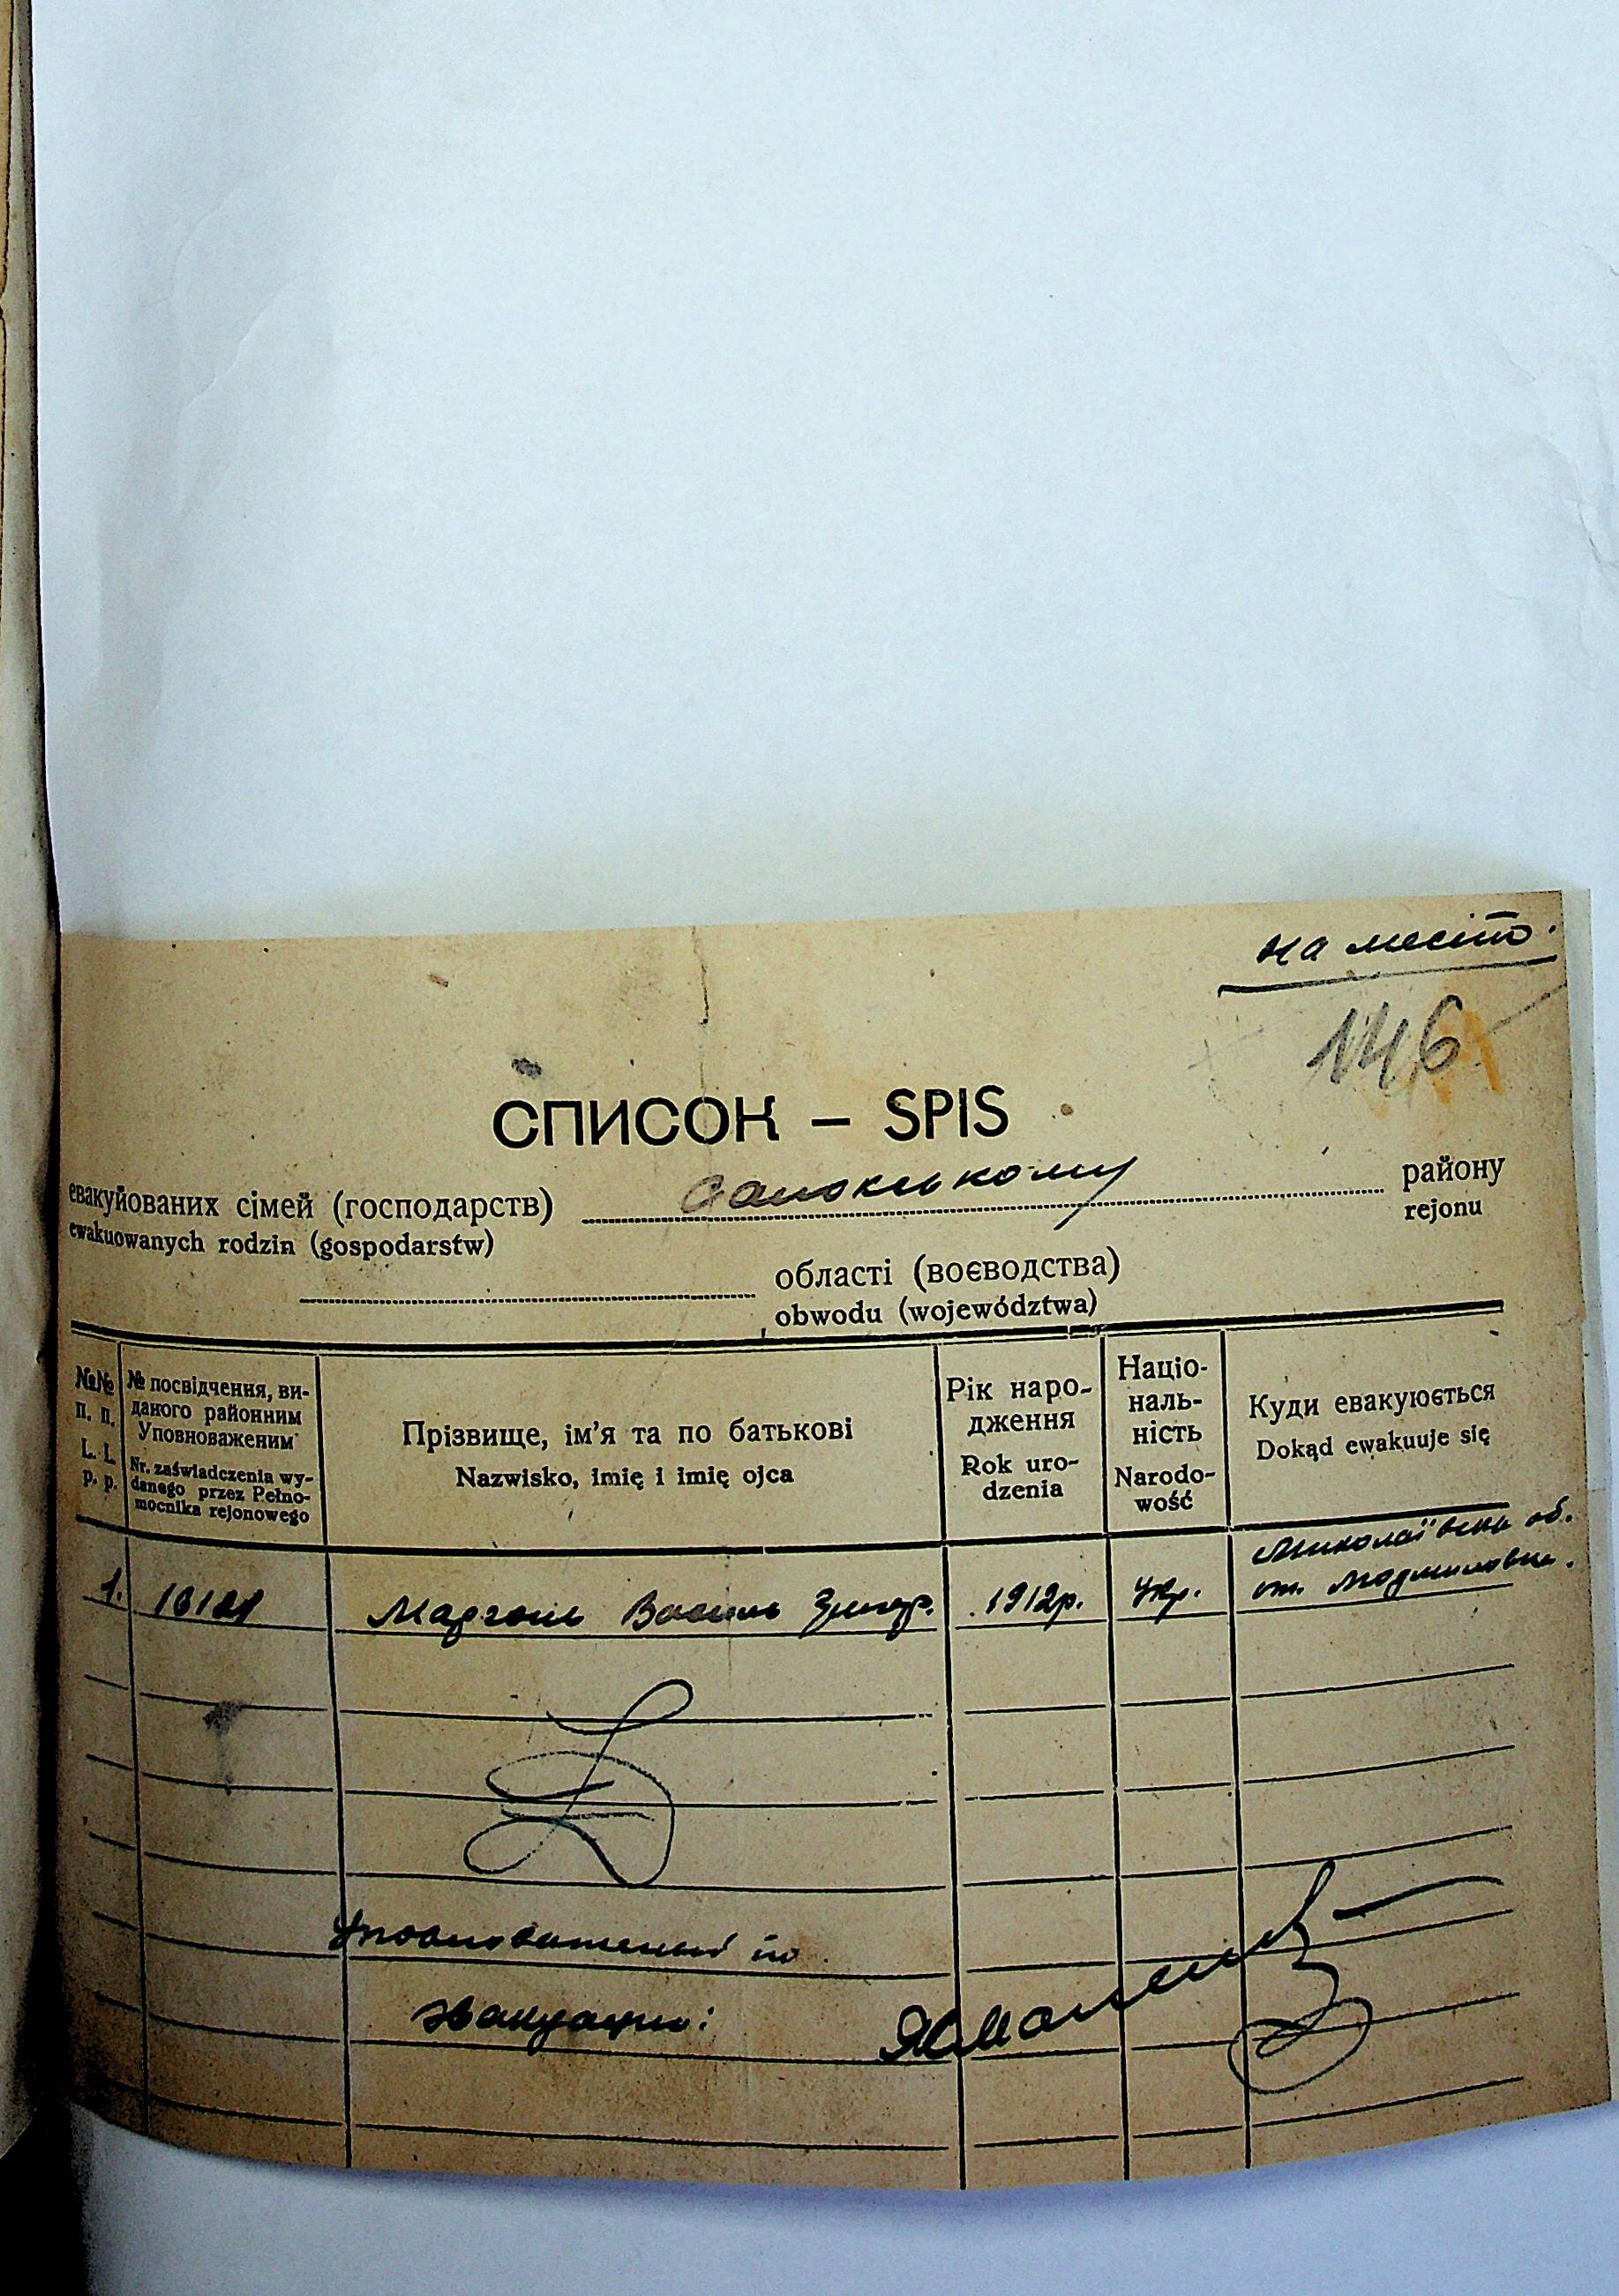 на місто.
146
СПИСОК – SPIS
евакуйованих сімей (господарств) Саноцькому району
ewakuowanych rodzin (gospodarstw) rejonu
області (воєводства)
obwodu (województwa)
№№ п. п. L. L. p. p.
№ посвідчення, ви-
даного районним
Уповноваженим
Nr. zaświadczenia wy-
danego przez Pełno-
mocnika rejonowego
Прізвище, ім'я та по батькові
Nazwisko, imię i imię ojca
Рік наро-
дження
Rok uro-
dzenia
Націо-
наль-
ність
Narodo-
wość
Куди евакуюється
Dokąd ewakuuje się
Миколаївська об.
1. Василь 1912р. Укр. ст.
Уповноважений по
эвакуации: